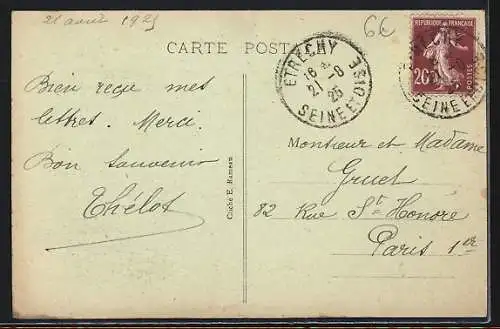 21 août 1925
6€
CARTE POSTALE
ETRECHY
16
21-8
25
SEINE ET OISE
REPUBLIQUE FRANÇAISE
20
POSTES
SEINE ET OISE
Bien reçu mes
lettres. Merci.
Bon souvenir
Thélot
Cliché E. Rameau
Monsieur et Madame
Gruet
82 Rue St-Honoré
Paris 1er